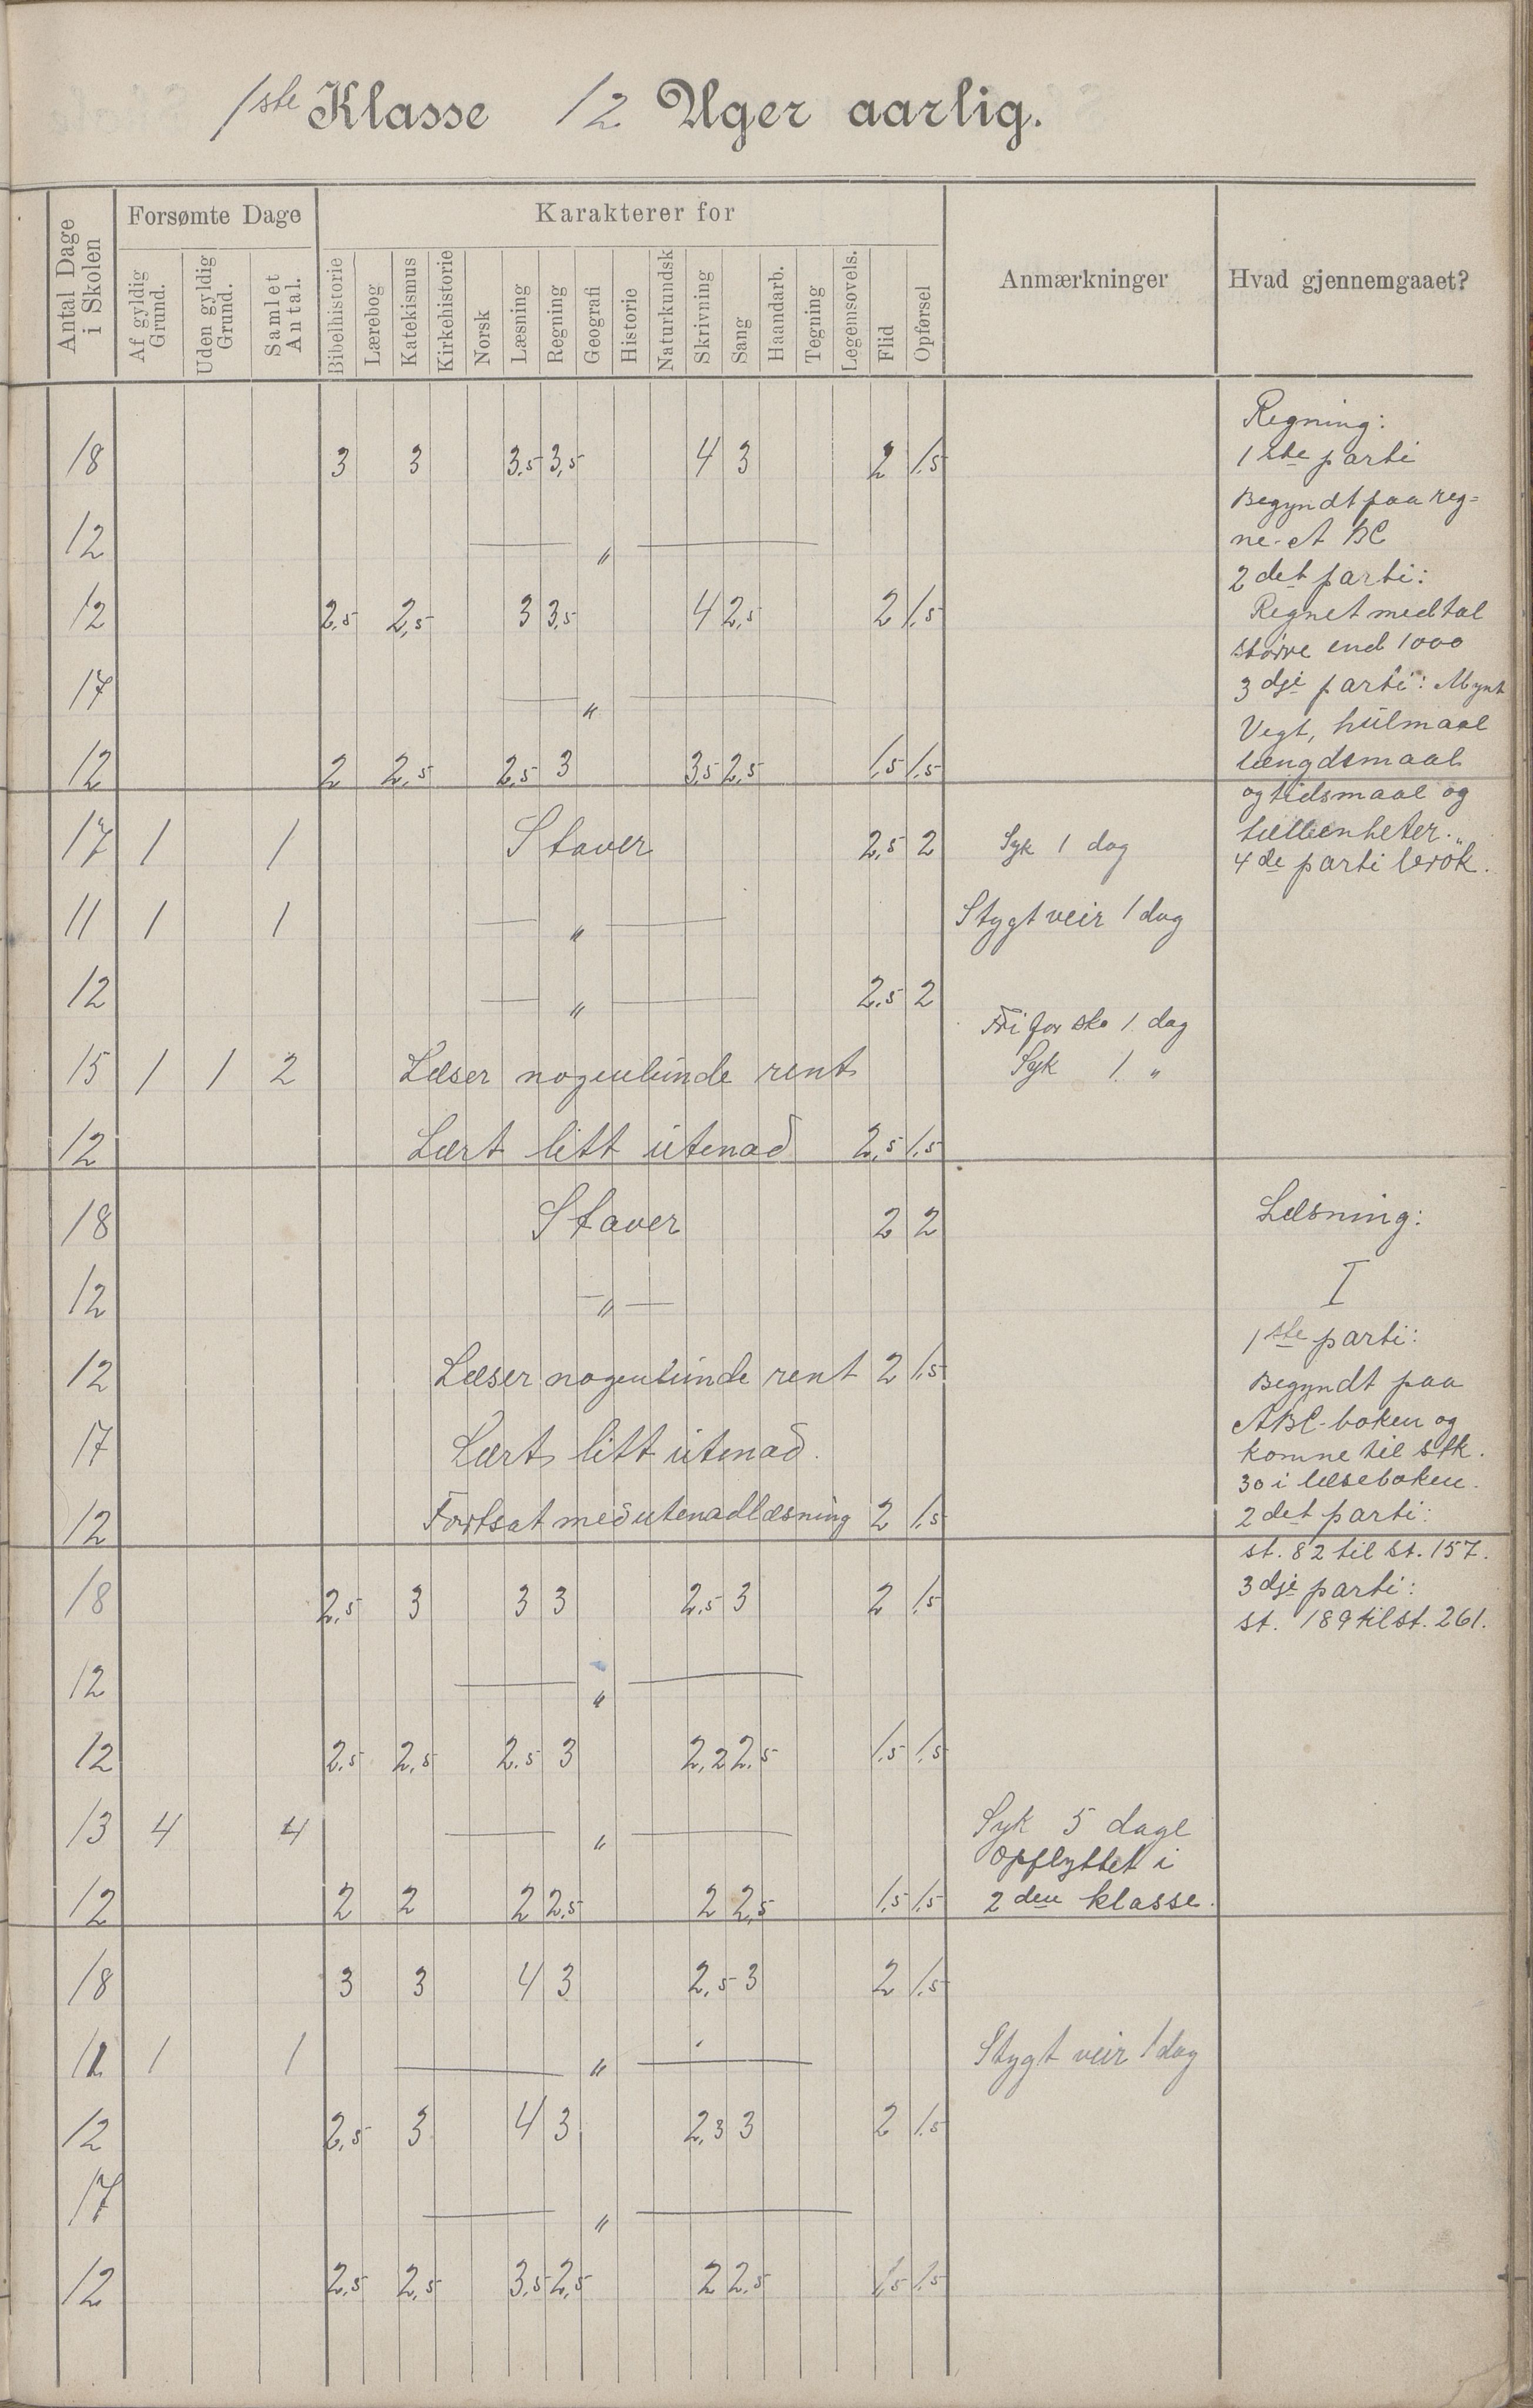 1ste Klasse 12 Uger aarlig.
Antal Dage i Skolen
Forsømte Dage
Af gyldig Grund.
Uden gyldig Grund.
Samlet Antal.
Karakterer for
Bibelhistorie
Lærebog
Katekismus
Kirkehistorie
Norsk
Læsning
Regning
Geografi
Historie
Naturkundsk
Skrivning
Sang
Haandarb.
Tegning
Legemsøvels.
Flid
Opførsel
Anmærkninger
Hvad gjennemgaaet?
18 3 3 3,5 3,5 4 3 2 1,5
12 — " —
12 2,5 2,5 3 3,5 4 2,5 2 1,5
17 — " —
12 2 2,5 2,5 3 3,5 2,5 1,5 1,5
17 1 1 Staver 2,5 2 Syk 1 dag
11 1 1 — " — Stygt veir 1 dag
12 — " — 2,5 2
Fri for sko 1 dag
15 1 1 2 Læser nogenlunde rent Syk 1 "
12 Lært litt utenad 2,5 1,5
18 Staver 2 2
12 — " —
12 Læser nogenlunde rent 2 1,5
17 Lært litt utenad.
12 Fortsat med utenadlæsning 2 1,5
18 2,5 3 3 3 2,5 3 2 1,5
12 — " —
12 2,5 2,5 2,5 3 2,2 2,5 1,5 1,5
13 4 4 — " — Syk 5 dage
Opflyttet i
12 2 2 2 2,5 2 2,5 1,5 1,5 2den klasse.
18 3 3 4 3 2,5 3 2 1,5
11 1 1 — " — Stygt veir 1 dag
12 2,5 3 4 3 2,3 3 2 1,5
17 — " —
12 2,5 2,5 3,5 2,5 2 2,5 1,5 1,5
Regning:
1ste parti
Begyndt paa reg=
ne-ABC
2det parti:
Regnet med tal
større end 1000
3dje parti: Mynt
Vegt, hulmaal
længdemaal
og tidsmaal og
tælleenheter.
4de parti brøk.
Læsning:
I
1ste parti:
Begyndt paa
ABC-boken og
komne til stk.
30 i læseboken.
2det parti:
st. 82 til st. 157.
3dje parti:
st. 189 til st. 261.